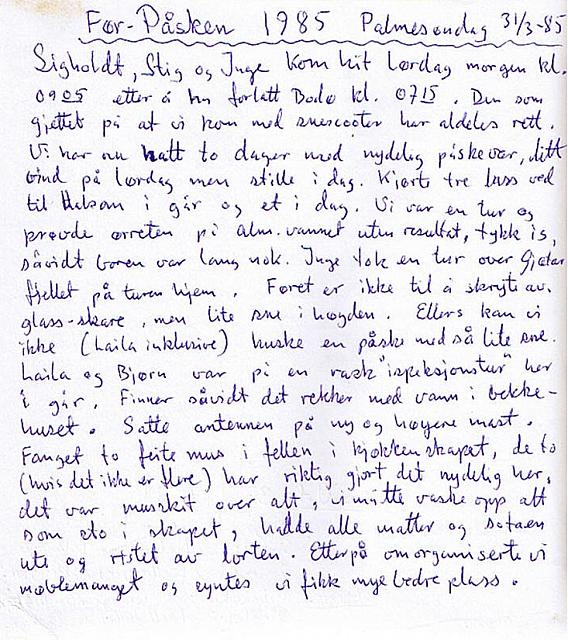 Før-Påsken 1985 Palmesøndag 31/3-85
Sigholdt, Stig og Inge kom hit lørdag morgen kl.
0905 etter å ha forlatt Bodø kl. 0715. Den som
gjettet på at vi kom med snescooter har aldeles rett.
Vi har nu hatt to dager med nydelig påskevær, litt
vind på lørdag men stille i dag. Kjørte tre lass ved
til Helsan i går og et i dag. Vi var en tur og
prøvde ørreten på Alm.vannet uten resultat, tykk is,
såvidt boren var lang nok. Inge tok en tur over Gjetar
fjellet på turen hjem. Føret er ikke til å skryte av.
glass-skare, men lite sne i høyden. Ellers kan vi
ikke (Laila inklusive) huske en påske med så lite sne.
Laila og Bjørn var på en rask "inspeksjonstur" her
i går. Finner såvidt det rekker med vann i bekke-
huset. Satte antennen på ny og høyere mast.
Fanget to feite mus i fellen i kjøkkenskapet, de to
(hvis det ikke er flere) har riktig gjort det nydelig her,
det var musskit over alt, vi måtte vaske opp alt
som sto i skapet, hadde alle matter og sofaen
ute og ristet av lorten. Etterpå omorganiserte vi
møblemanget og syntes vi fikk mye bedre plass.